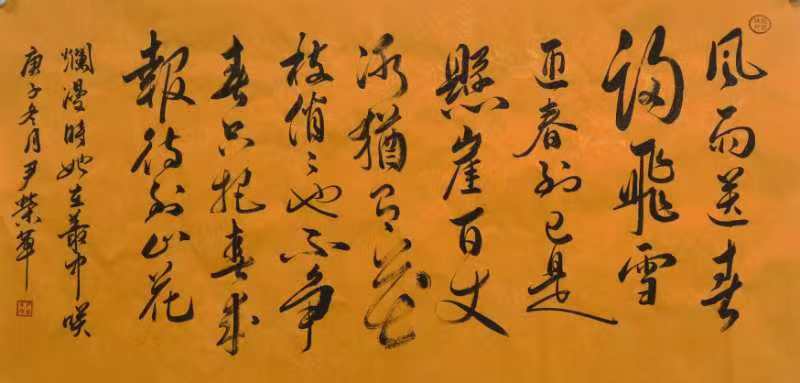 風雨送春
歸飛雪
迎春到已是
懸崖百丈
冰猶有花
枝俏々也不爭
春只把春來
報待到山花
爛漫時她在叢中咲
庚子冬月尹榮軍